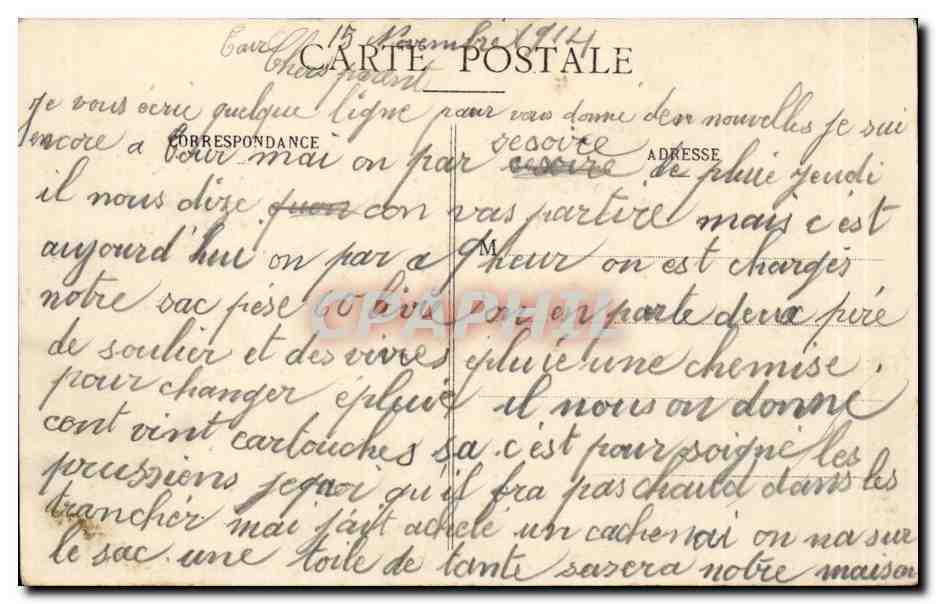 15 Novembre 1914
CARTE POSTALE
Chers parent
je vous écrie quelque ligne pour vous donné des nouvelles je sui
encore a
CORRESPONDANCE
ADRESSE
mai on par sesoire de pluie jeudi
il nous dize quon con vas partire mais c'est
M
aujourd'hui on par a 9 heur on est chargés
notre sac pése 60 livre on en parte deux péré
de soulier et des vivres épluié une chemise.
pour changer épluié il nous on donné
cont vint cartouches sa c'est pour soigné les
prussiens je qu'il fra pas chaud dans les
trancher mai jait acheté un cachenai on na sur
le sac une toile de tante sazera notre maison
CPAPHIL